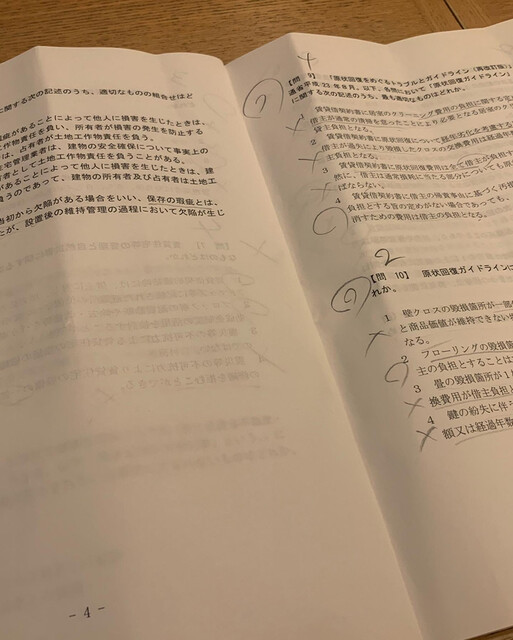 に関する次の記述のうち、適切なものの組合せはど
があることによって他人に損害を生じたときは、
作物責任を負い、所有者が損害の発生を防止する
は、占有者が土地工作物責任を負う。
宅管理業者は、建物の安全確保について事実上の
者として土地工作物責任を負うことがある。
があることによって他人に損害を生じたときは、建
負うのであって、建物の所有者及び占有者は土地工
当初から欠陥がある場合をいい、保存の瑕疵とは、
たが、設置後の維持管理の過程において欠陥が生じ
- 4 -
4
【問 9】 「原状回復をめぐるトラブルとガイドライン(再改訂版)」
通省平成 23 年 8 月。以下、各問において「原状回復ガイドライン」
に関する次の記述のうち、最も適切なものはどれか。
1 賃貸借契約書に居室のクリーニング費用の負担に関する定
借主が通常の清掃を怠ったことにより必要となる居室のク
貸主負担となる。
2 賃貸借契約書に原状回復について経年劣化を考慮する
借主が過失により毀損したクロスの交換費用は経過年
主負担となる。
3 賃貸借契約書に原状回復費用は全て借主が負担
然に、借主は通常損耗に当たる部分についても原
ばならない。
4 賃貸借契約書に借主の帰責事由に基づく汚損
負担とする旨の定めがない場合であっても、
消すための費用は借主の負担となる。
2
【問 10】 原状回復ガイドラインに
れか。
1 壁クロスの毀損箇所が一部
と商品価値が維持できない
なる。
2 フローリングの毀損箇
主の負担とすることは
3 畳の毀損箇所が1
換費用が借主負担と
4 鍵の紛失に伴う
額又は経過年数